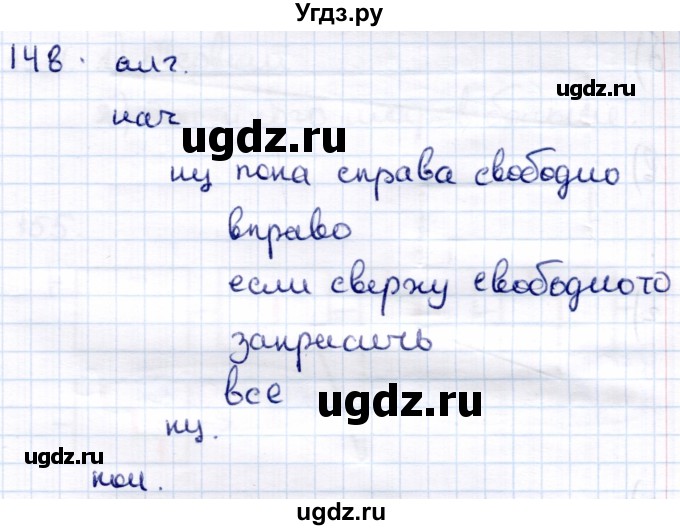 Угдз.ру
148. алг.
ugdz.ru
нач
ugdz.ru
нц пока справа свободно
вправо
если сверху свободното
закрасить
все
ugdz.ru
кц.
ugdz.ru
кон.
ugdz.ru